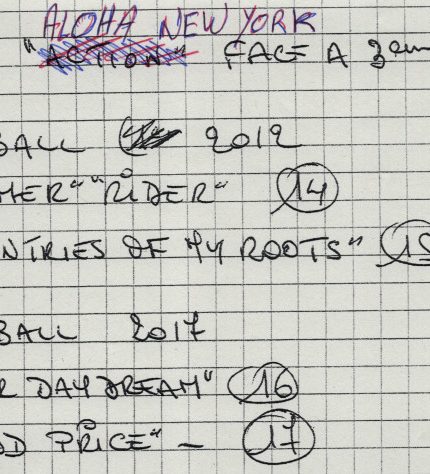 ALOHA NEW YORK
"ACTION" FACE A 3em
BALL 2012
HER" "RIDER" 14
NTRIES OF MY ROOTS" 15
BALL 2017
R DAY DREAM" 16
OD PRICE" - 17